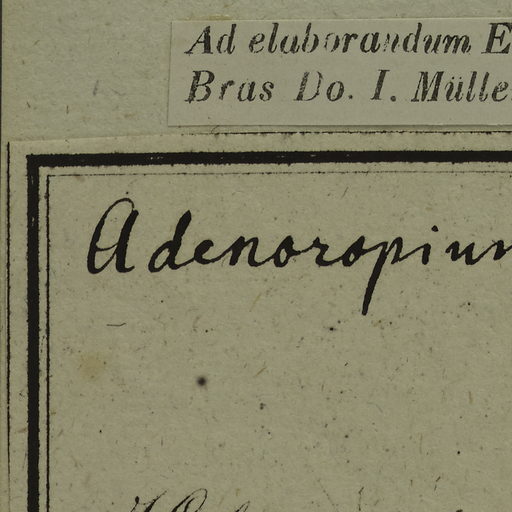 Ad elaborandum E
Bras Do. I. Mülle
Adenoropium